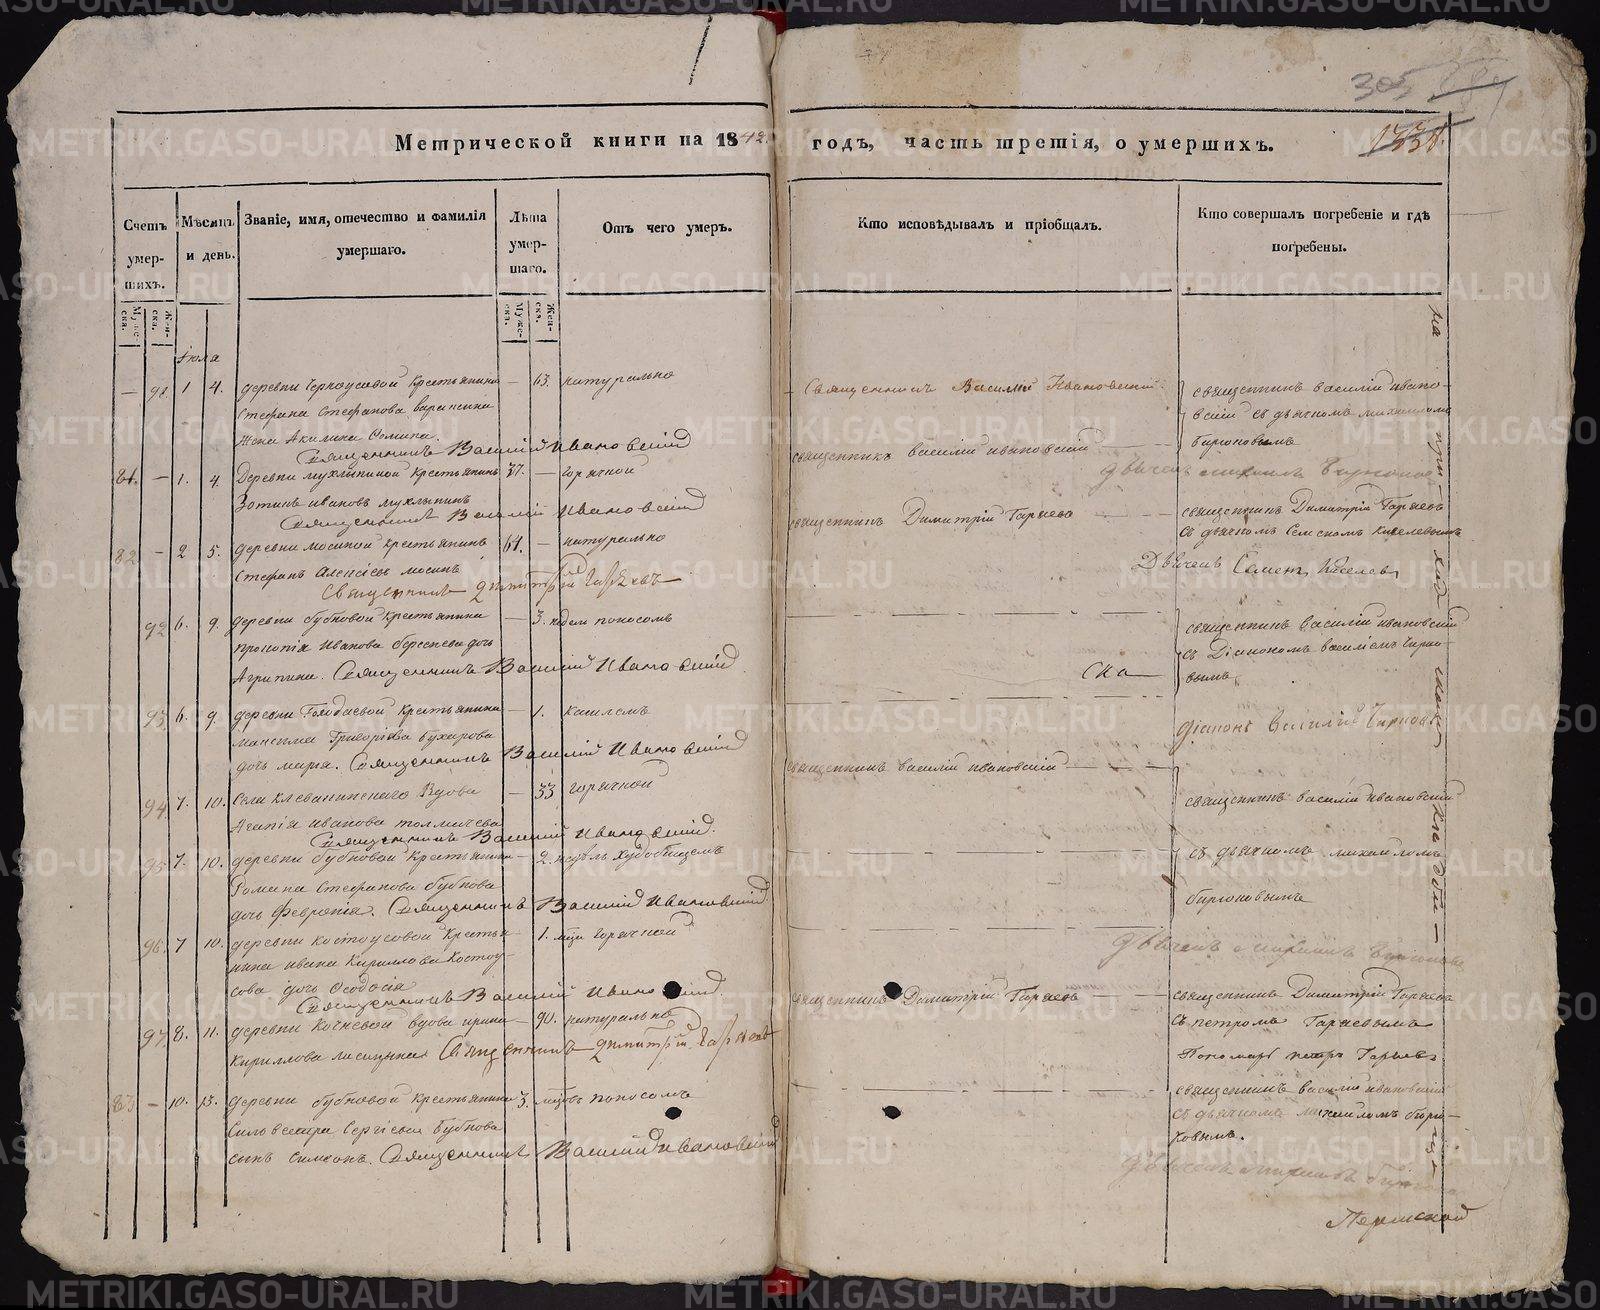 305
Метрической книги на 1842
годъ, часть третія, о умершихъ.
Счетъ умер-шихъ.
Мѣсяцъ и день.
Званіе, имя, отечество и фамилія умершаго.
Лѣта умер-шаго.
Отъ чего умеръ.
Кто исповѣдывалъ и пріобщалъ.
Кто совершалъ погребеніе и гдѣ погребены.
Муже-ска.
Жен-ска.
Муже-ска.
Жен-ска.
Іюля
— 91 1 4. деревни Черноусовой крестьянина — 63. натурально
Стефана Стефанова
жена Акилина Фомина.
Священникъ Василій Ивановскій
Священникъ Василій Ивановскій
священникъ василій ивано-
вскій съ дьячкомъ михаиломъ
бирюковымъ
81. — 1. 4 Деревни мухлыниной крестьянинъ 37. — горячкой
Зотикъ ивановъ мухлынинъ
Священникъ Василій Ивановскій
священникъ василій ивановскій
дьячекъ михаилъ Бирюковъ
82 — 2 5. деревни мосиной крестьянинъ 61. — натурально
Стефанъ Алексіевъ мосинъ
Священникъ Димитрій Гаряевъ
священникъ Димитрій Гаряевъ
священникъ Димитрій Гаряевъ
съ дьячкомъ Семеномъ киселевымъ
Дьячекъ Семенъ Киселевъ
92 6. 9. деревни бубновой крестьянина — 3. недели поносомъ
прокопія Иванова береснева дочь
Агрипина. Священникъ Василій Ивановскій
священникъ василій ивановскій
съ Діакономъ василіемъ Чирко-
вымъ
93 6. 9. деревни Голодаевой крестьянина — 1. кашлемъ
максима Григоріева бухарова
дочь марія. Священникъ Василій Ивановскій
діаконъ Василій Чирковъ
94 7. 10. Села клевакинскаго вдова — 33 горячкой
Агапія иванова толмачева
Священникъ Василій Ивановскій.
священникъ василій ивановскій
священникъ василій ивановскій
съ дьячкомъ михаиломъ
бирюковымъ
95 7. 10. деревни бубновой крестьянина — 2. недѣль худобищемъ
Романа Стефанова бубнова
дочь Февронія. Священникъ Василій Ивановскій
96. 7 10. деревни костоусовой крестья- — 1. мца горячкой
нина ивана Кириллова Костоу-
сова дочь Феодосія
Священникъ Василій Ивановскій.
дьячекъ михаилъ Бирюковъ
97 8. 11. деревни кочневой вдова ирина — 90. натурально
Кириллова лисицына Священникъ Димитрій Гаряевъ
священникъ Димитрій Гаряевъ
священникъ Димитрій Гаряевъ
съ петромъ Гаряевымъ
Пономарь петръ Гаряевъ
83 — 10. 13. деревни бубновой крестьянина 3. мцовъ поносомъ
Сильвестра Сергіева бубнова
сынъ Симеонъ. Священникъ Василій Ивановскій
священникъ василій ивановскій
съ дьячкомъ михаиломъ бирю-
ковымъ.
дьячекъ михаилъ бирюковъ
на приходскомъ кладби-
ще
Пермской
METRIKI.GASO-URAL.RU